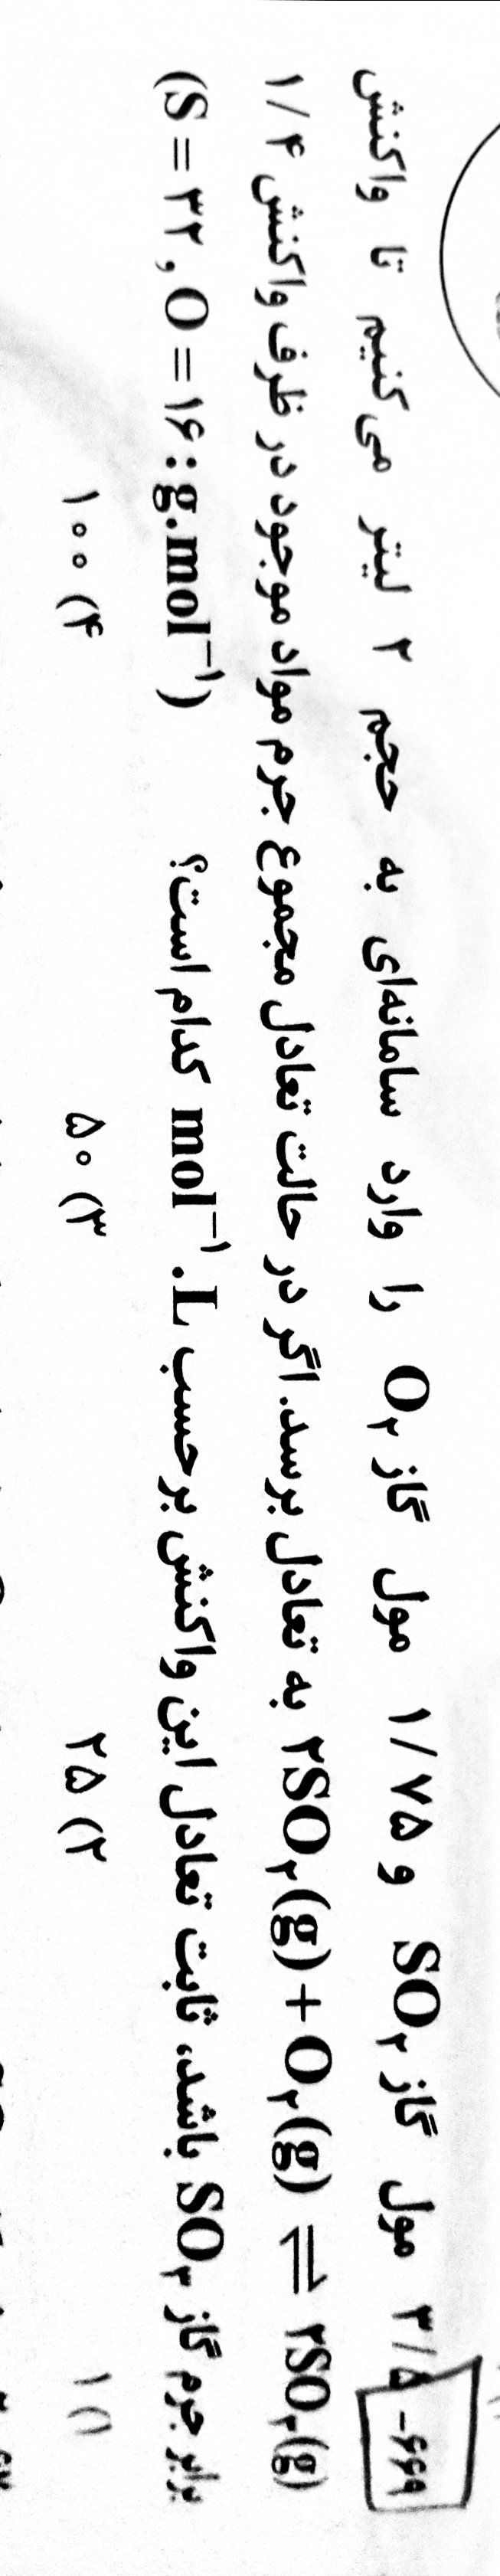 ۶۶۹- ۳/۵ مول گاز SO₂ و ۱/۷۵ مول گاز O₂ را وارد سامانه‌ای به حجم ۲ لیتر می‌کنیم تا واکنش
۲SO₂(g) + O₂(g) ⇌ ۲SO₃(g) به تعادل برسد. اگر در حالت تعادل مجموع جرم مواد موجود در ظرف واکنش ۱/۴
برابر جرم گاز SO₃ باشد، ثابت تعادل این واکنش برحسب mol⁻¹.L کدام است؟ (S = ۳۲, O = ۱۶ : g.mol⁻¹)
۱) ۱ ۲) ۲۵ ۳) ۵۰ ۴) ۱۰۰